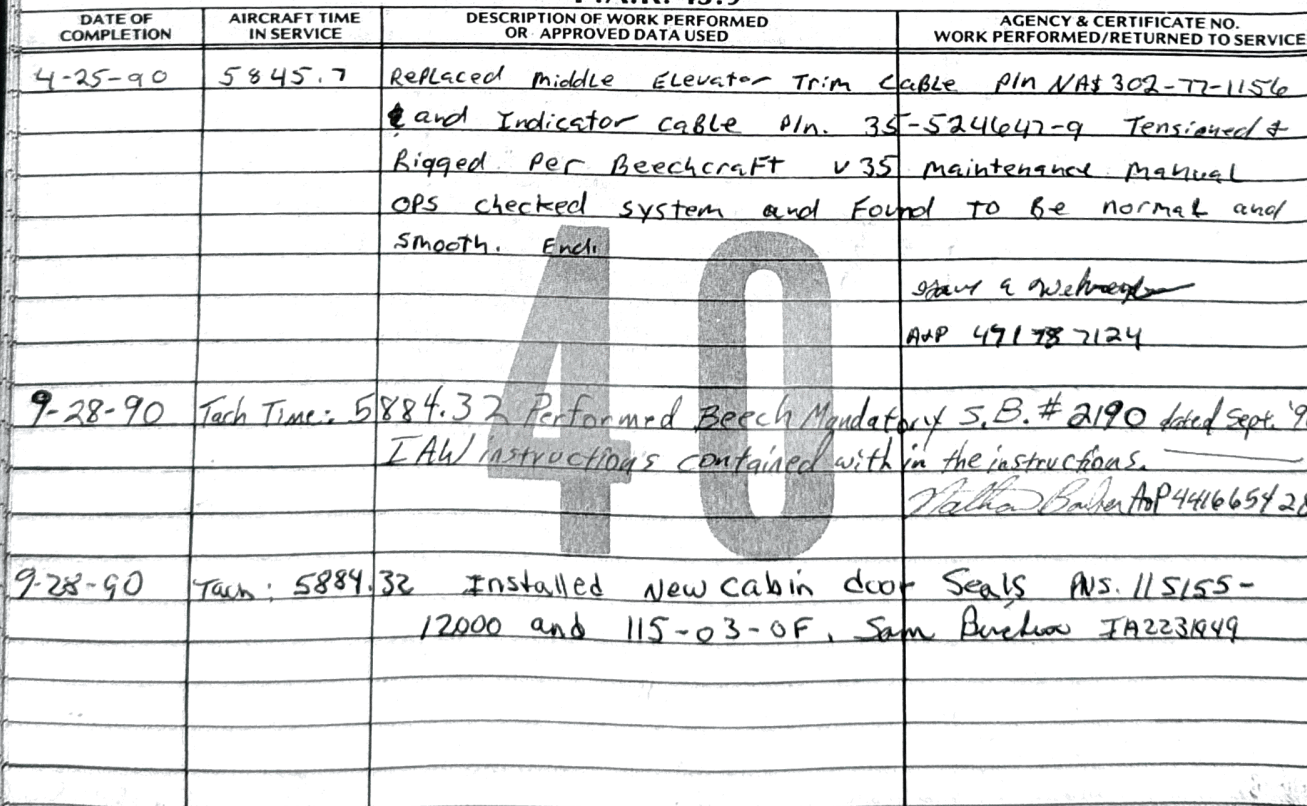 DATE OF COMPLETION
AIRCRAFT TIME IN SERVICE
DESCRIPTION OF WORK PERFORMED OR APPROVED DATA USED
AGENCY & CERTIFICATE NO. WORK PERFORMED/RETURNED TO SERVICE
4-25-90 5845.7 Replaced Middle Elevator Trim Cable P/n NAS 302-77-1156
and Indicator cable P/n. 35-524647-9 Tensioned &
Rigged Per Beechcraft V35 Maintenance Manual
OPS checked system and Found to Be normal and
Smooth. End.
A&P 471787124
40
9-28-90 Tach Time: 5884.32 Performed Beech Mandatory S.B. # 2190 dated Sept. '9
IAW instructions contained with in the instructions.
A&P 44166542
9-28-90 Tach: 5884.32 Installed New Cabin door Seals PNS. 115155-
12000 and 115-03-0F. Sam IA2231949